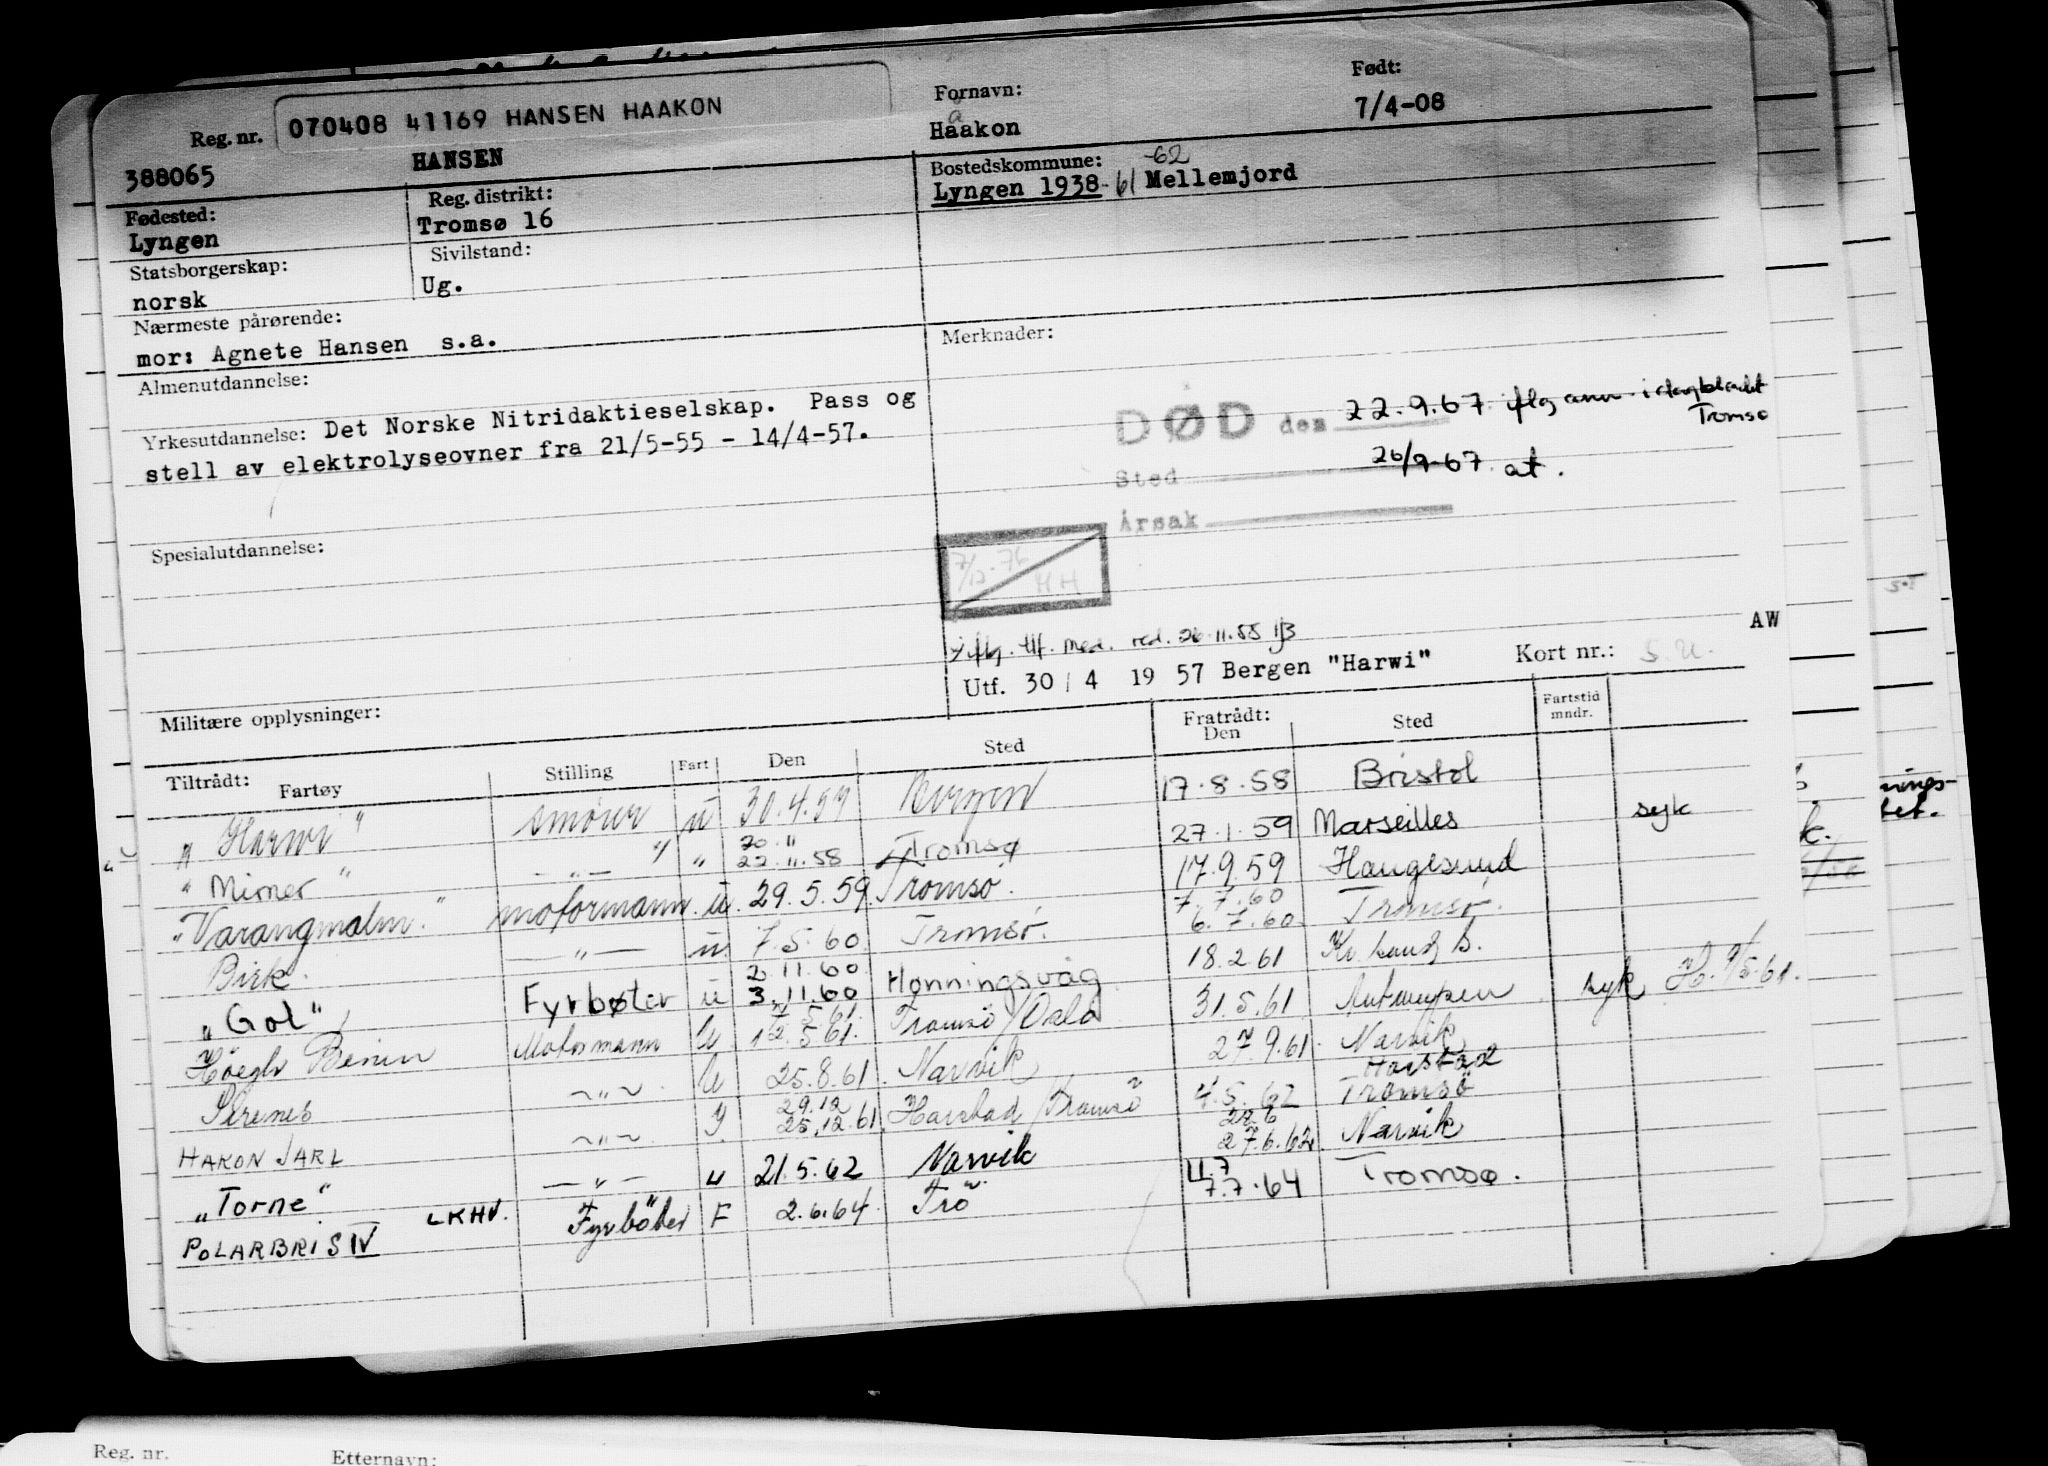 Reg. nr. 070408 41169 HANSEN HAAKON
Fornavn: Født:
388065 HANSEN Haakon 7/4-08
Fødested: Reg. distrikt: Bostedskommune: -62
Lyngen Tromsø 16 Lyngen 1938-61 Mellemjord
Statsborgerskap: Sivilstand:
norsk Ug.
Nærmeste pårørende:
mor: Agnete Hansen s.a.
Merknader:
Almenutdannelse:
Yrkesutdannelse: Det Norske Nitridaktieselskap. Pass og
stell av elektrolyseovner fra 21/5-55 - 14/4-57.
DØD den 22.9.67 iflg ann. i dagbladet
Tromsø
Sted 26/9-67 at.
Årsak
Spesialutdannelse:
7/12-76
HH
iflg. tlf. med. red. 26.11.55
AW
Utf. 30/4 1957 Bergen "Harwi" Kort nr.: S.U.
Militære opplysninger:
Tiltrådt: Fartøy Stilling Fart Den Sted Fratrådt: Den Sted Fartstid mndr.
"Harwi" smører u 30.4.57 Bergen 17.8.58 Bristol
20 "
"Mimer" - " - " 22.11.58 Tromsø 27.1.59 Marseilles syk
"Varangmalm" motormann u. 29.5.59 Tromsø. 17.9.59 Haugesund
7.7.60
Birk. - " - u. 7.5.60 Tromsø. 6.7.60 Tromsø.
2.11.60
"Gol" Fyrbøter u 3.11.60 Honningsvåg 18.2.61 Kr.sand S.
Höegh Benin Motormann U 12.5.61. Tromsø/Oslo 31.5.61 Antwerpen syk
Sirenes - " - U 25.8.61 Narvik 27.9.61. Narvik
29.12 Harstad
HAKON JARL - " - 25.12.61 Harstad/Tromsö 4.5.62 Tromsö
22.6
"Torne" - " - " 21.5.62 Narvik 27.6.62 Narvik
4.7
POLARBRIS IV LKHV. Fyrböter F 2.6.64 Trö 7.7.64 Tromsø.
Reg. nr. Etternavn: